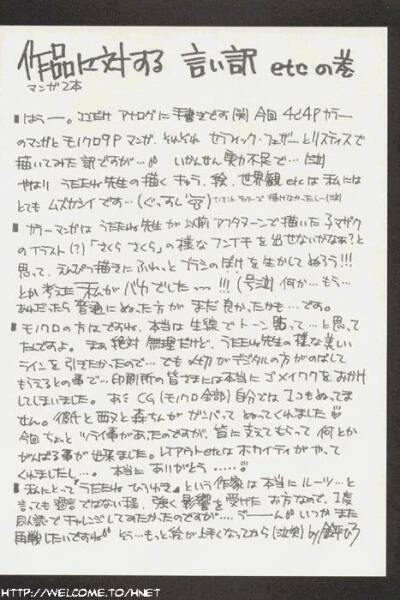 作品に対する 言い訳 etcの巻
マンガ2本
■はぅー。ココだけ アナログに 手書きです(笑) 今回 4C4Pカラー
のマンガと モノクロ9P マンガ、それぞれ セラフィック・フェザーと リスティスで
描いてみた訳ですが… いかんせん実力不足で…(泣)
やはり うたたね先生の描く キャラ、絵、世界観 etcは 私には
とても ムズカシイです…(ぐっすし)
■カラーマンガは うたたね先生が以前アフタヌーンで描いた
のイラスト(?)「さくら さくら」の様なフンイキを出せないかなぁ?と
思って、えんぴつ描きに ふわっと ブラシのぼけを生かして ぬろう!!!
とか考えた 私が バカでしたっ……!!!(号泣) 何か…もう…
あれだったら 普通に ぬった方が まだ 良かったかも…です。
■モノクロの方はですね、本当は 生線で トーン 貼って…と思って
たんですよ。まぁ 絶対 無理だけど、うたたね先生の様な美しい
ラインを 引きたかったので… でも〆切が デジタルの方が のばして
もらえるとの事で…印刷所の皆さまには本当に ゴメイワクを おかけ
してしまいました。あと CG(モノクロ全部) 自分では 1コもぬってま
せん。彼氏と 西又と 森ちんが ガンバって ぬってくれました♡
今回 ちょっと ツライ事があったのですが、皆に支えてもらって 何とか
がんばる事が出来ました。レイアウトetcは ホカイティが やって
くれましたし…。 本当に ありがとう……
■私にとって『うたたね ひろゆき』という作家は本当に ルーツ…と
言っても 過言ではない程、強く 影響を受けた お方なので、1度
同人誌で チャレンジしてみたかったのですが…、うーーん いつか また
再戦したいですね そう…もっと絵が上手くなってから(泣笑) by 鈴平ひろ
HTTP://WELCOME.TO/HNET